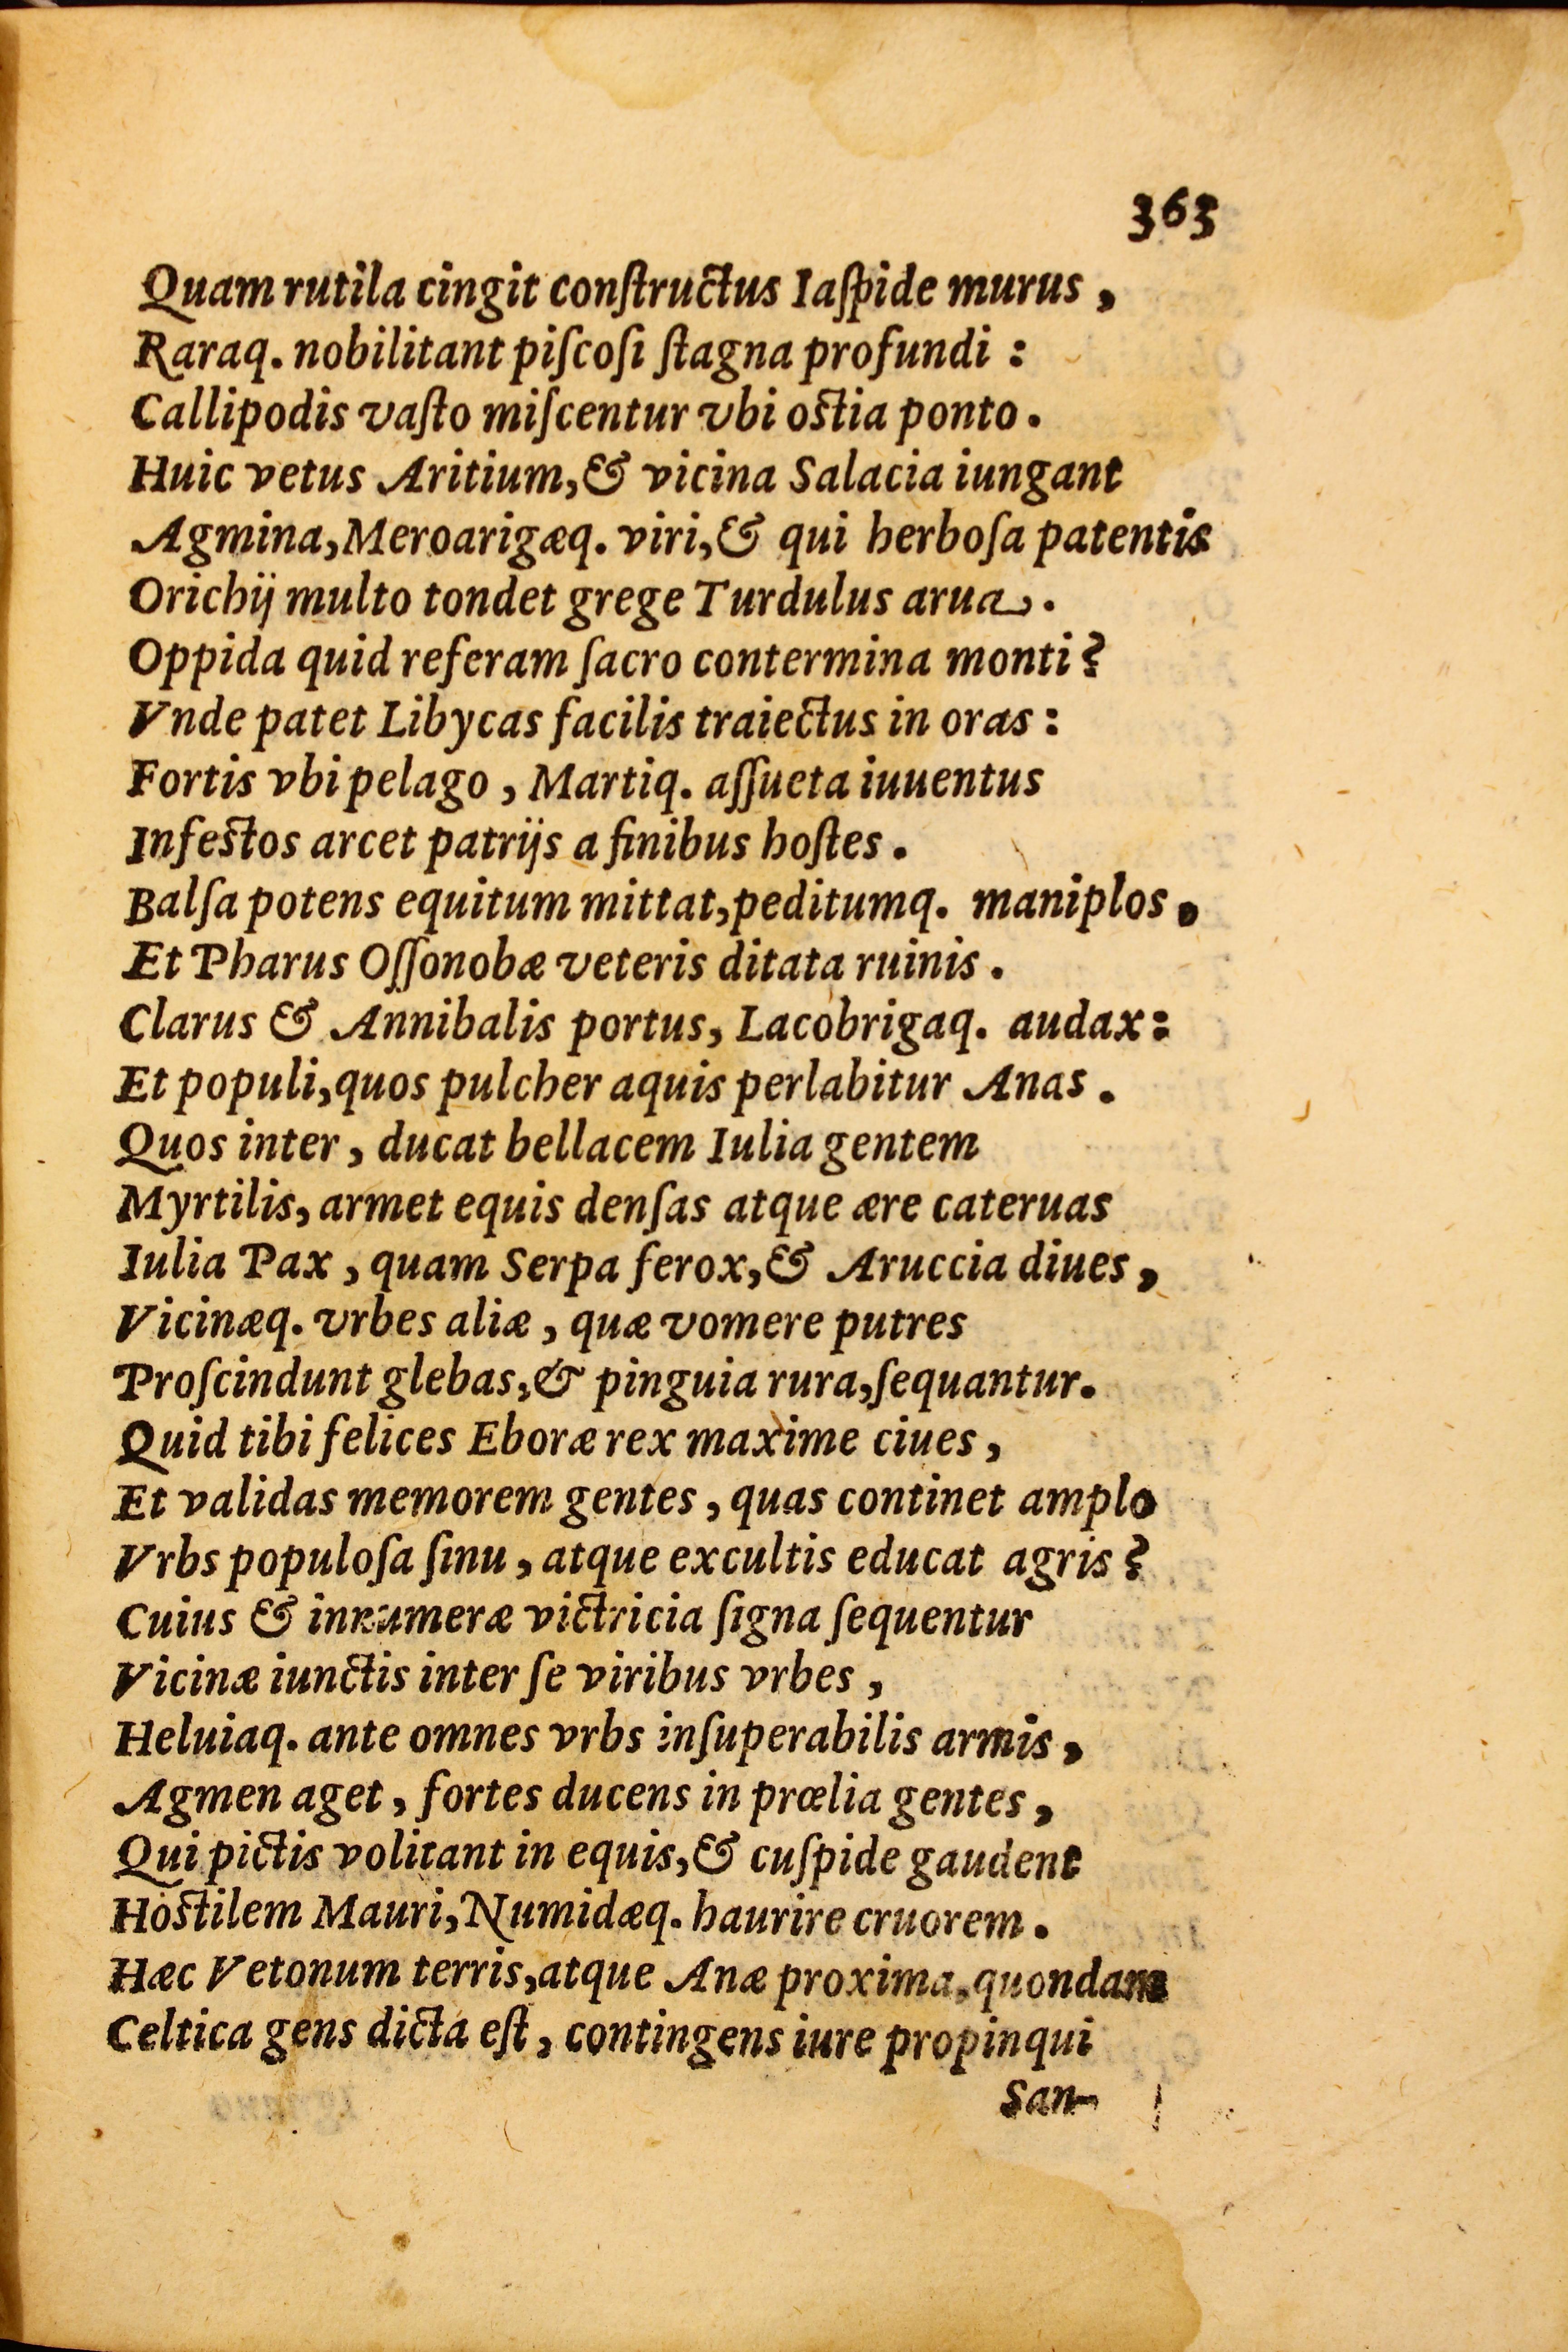 363
Quam rutila cingit conſtructus Iaſpide murus,
Raraq. nobilitant piſcoſi ſtagna profundi:
Callipodis vaſto miſcentur vbi oſtia ponto.
Huic vetus Aritium, & vicina Salacia iungant
Agmina, Meroarigæq. viri, & qui herboſa patentis
Orichij multo tondet grege Turdulus arua.
Oppida quid referam ſacro contermina monti?
Vnde patet Libycas facilis traiectus in oras:
Fortis vbi pelago, Martiq. aſſueta iuuentus
Infeſtos arcet patrijs a finibus hoſtes.
Balſa potens equitum mittat, peditumq. maniplos,
Et Pharus Oſſonobæ veteris ditata ruinis.
Clarus & Annibalis portus, Lacobrigaq. audax:
Et populi, quos pulcher aquis perlabitur Anas.
Quos inter, ducat bellacem Iulia gentem
Myrtilis, armet equis denſas atque ære cateruas
Iulia Pax, quam Serpa ferox, & Aruccia diues,
Vicinæq. vrbes aliæ, quæ vomere putres
Proſcindunt glebas, & pinguia rura, ſequantur.
Quid tibi felices Eboræ rex maxime ciues,
Et validas memorem gentes, quas continet amplo
Vrbs populoſa ſinu, atque excultis educat agris?
Cuius & innumeræ victricia ſigna ſequentur
Vicinæ iunctis inter ſe viribus vrbes,
Heluiaq. ante omnes vrbs inſuperabilis armis,
Agmen aget, fortes ducens in prœlia gentes,
Qui pictis volitant in equis, & cuſpide gaudent
Hoſtilem Mauri, Numidæq. haurire cruorem.
Hæc Vetonum terris, atque Anæ proxima, quondam
Celtica gens dicta eſt, contingens iure propinqui
San-